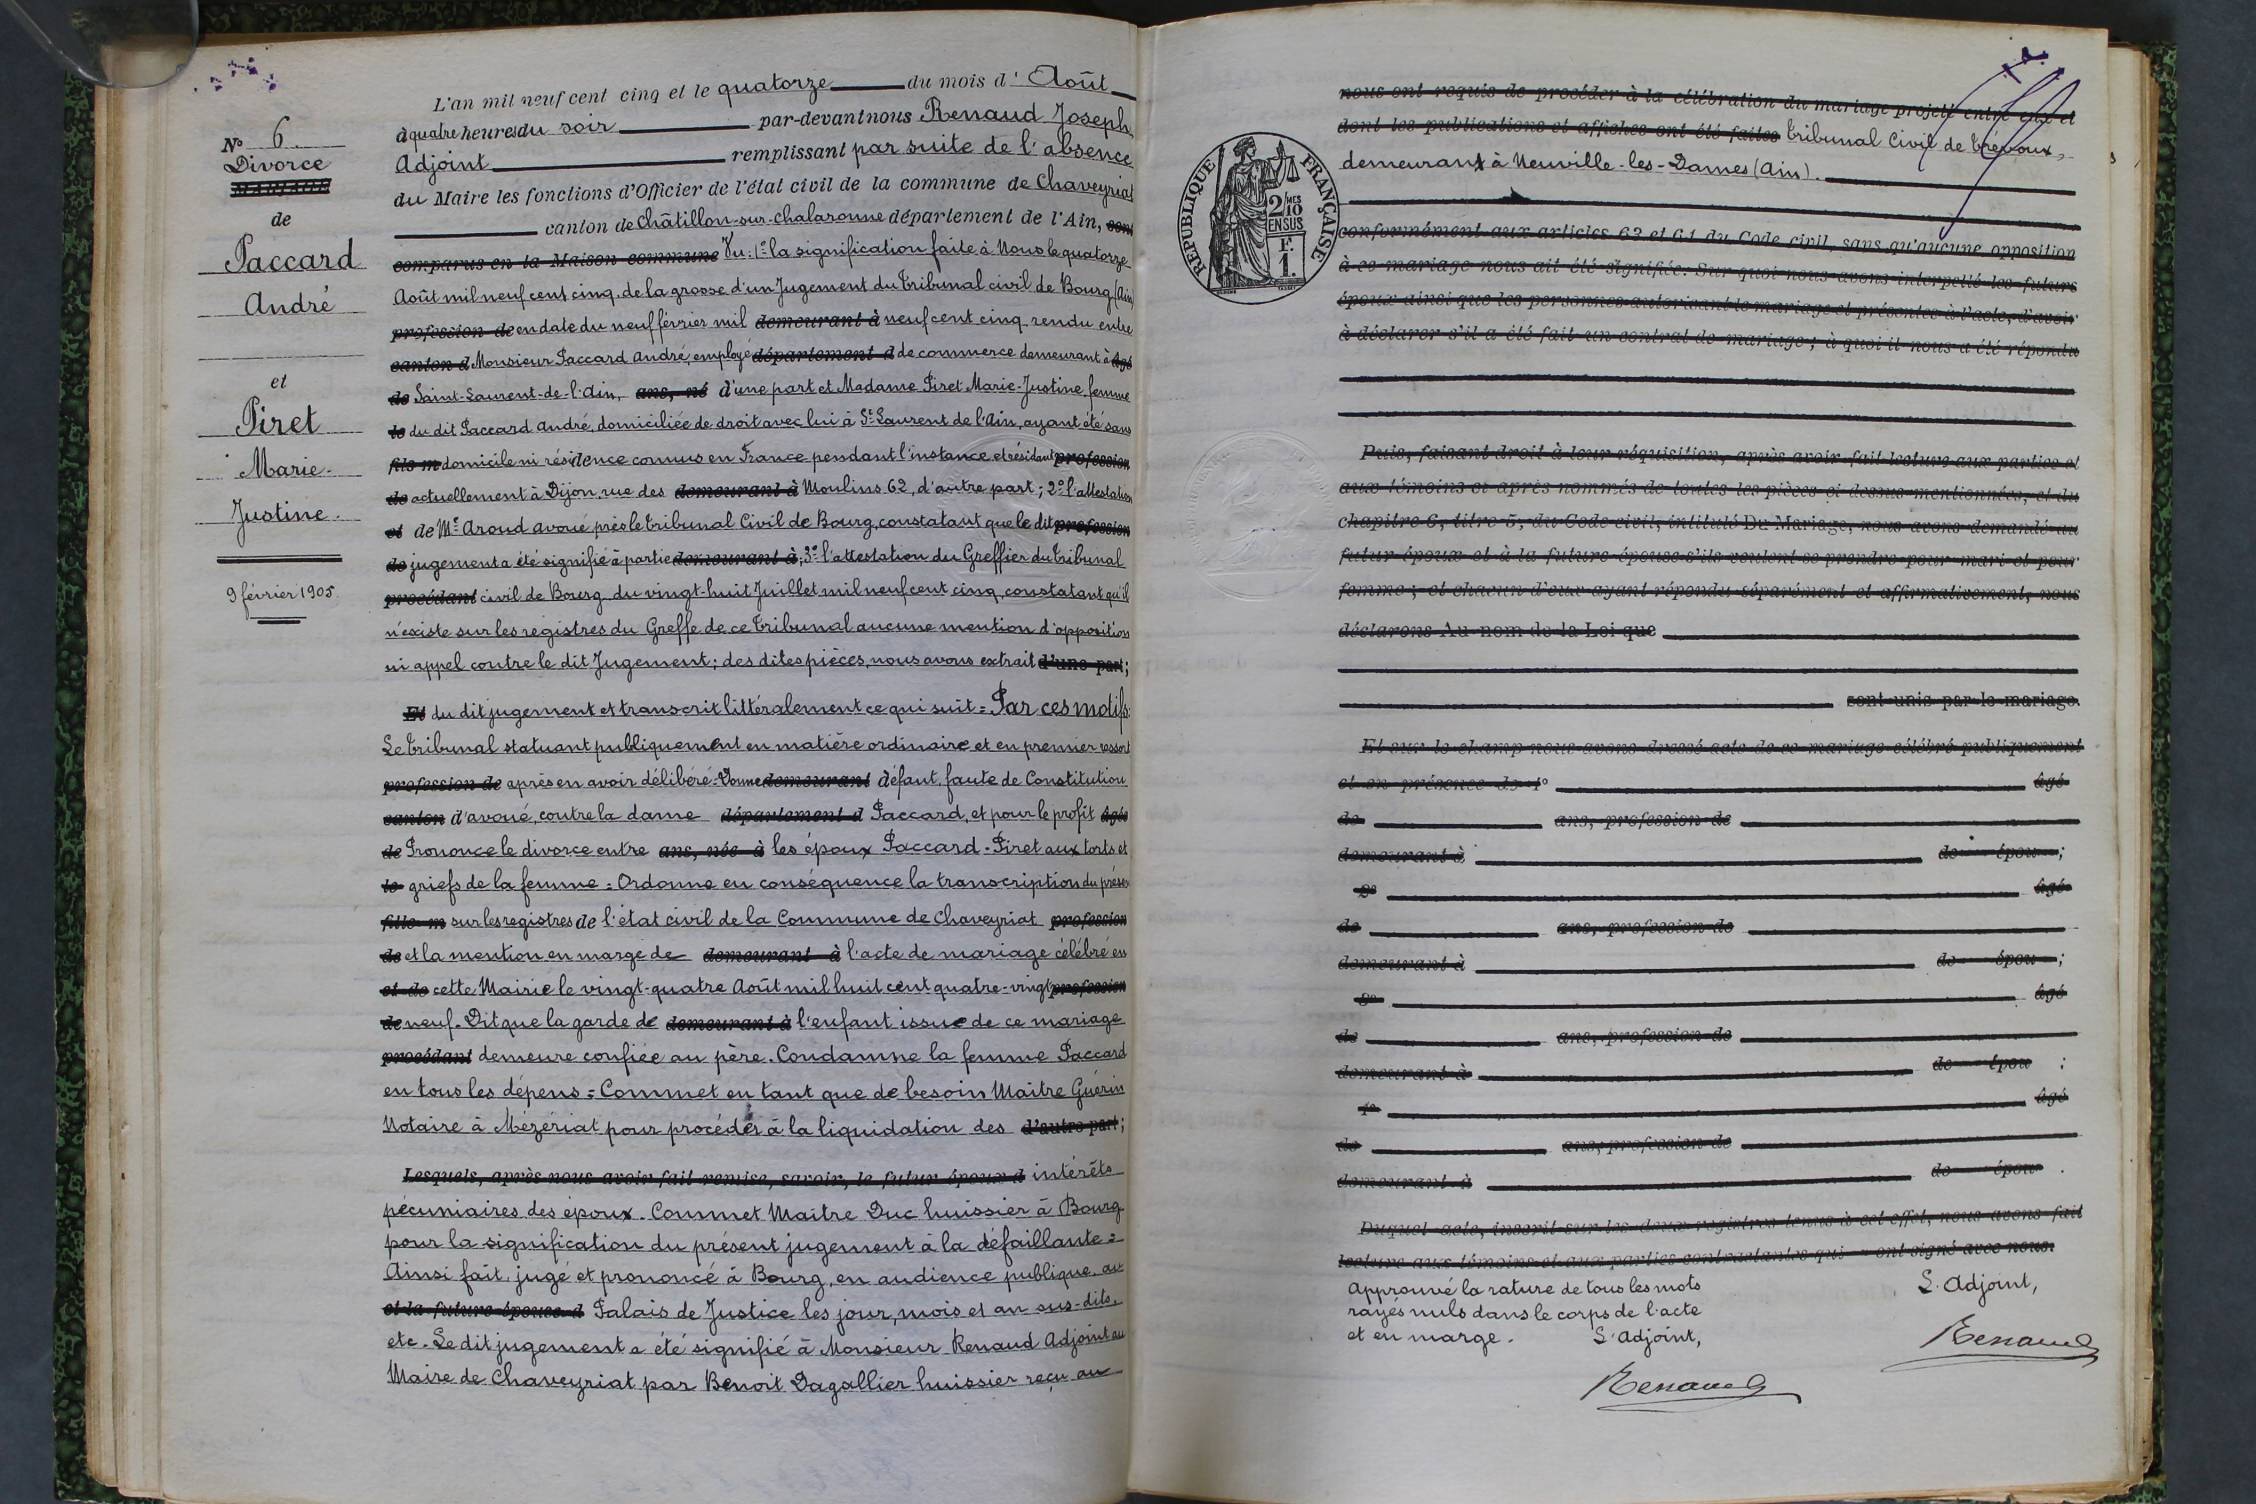 N° 6
Divorce
MARIAGE
de
Paccard
André
et
Piret
Marie-
Justine.
9 février 1905
L'an mil neuf cent cinq et le quatorze du mois d'Août
à quatre heures du soir par-devant nous Renaud Joseph
Adjoint remplissant par suite de l'absence
du Maire les fonctions d'Officier de l'état civil de la commune de Chaveyriat
canton de Châtillon-sur-Chalaronne département de l'Ain, sont
comparus en la Maison commune Vu: 1° la signification faite à Nous le quatorze
Août mil neuf cent cinq, de la grosse d'un Jugement du Tribunal civil de Bourg (Ain)
profession de en date du neuf février mil demeurant à neuf cent cinq rendu entre
canton d Monsieur Paccard André, employé département d de commerce demeurant à âgé
de Saint-Laurent-de-l'Ain, ans, né d'une part et Madame Piret Marie-Justine femme
le du dit Paccard André, domiciliée de droit avec lui à St Laurent de l'Ain, ayant été sans
fils m domicile ni résidence connus en France pendant l'instance et résidant profession
de actuellement à Dijon, rue des demeurant à Moulins 62, d'autre part; 2° l'attestation
et de Me Aroud avoué près le Tribunal Civil de Bourg, constatant que le dit profession
de jugement a été signifié à partie demeurant à; 3° l'attestation du Greffier du Tribunal
procédant civil de Bourg du vingt-huit Juillet mil neuf cent cinq, constatant qu'il
n'existe sur les registres du Greffe de ce Tribunal aucune mention d'opposition
ni appel contre le dit Jugement; des dites pièces, nous avons extrait d'une part;
Et du dit jugement et transcrit littéralement ce qui suit = Par ces motifs:
Le Tribunal statuant publiquement en matière ordinaire et en premier ressort
profession de après en avoir délibéré = Donne demeurant défaut, faute de Constitution
canton d'avoué, contre la dame département d Paccard, et pour le profit âgée
de Prononce le divorce entre ans, née à les époux Paccard-Piret aux torts et
le griefs de la femme = Ordonne en conséquence la transcription du présent
fille m sur les registres de l'état civil de la Commune de Chaveyriat profession
de et la mention en marge de demeurant à l'acte de mariage célébré en
et de cette Mairie le vingt-quatre Août mil huit cent quatre-vingt profession
de neuf. Dit que la garde de demeurant à l'enfant issue de ce mariage
procédant demeure confiée au père. Condamne la femme Paccard
en tous les dépens = Commet en tant que de besoin Maître Guérin
Notaire à Mézériat pour procéder à la liquidation des d'autre part;
Lesquels, après nous avoir fait remise, savoir, le futur époux d intérêts
pécuniaires des époux. Commet Maître Duc huissier à Bourg
pour la signification du présent jugement à la défaillante =
Ainsi fait, jugé et prononcé à Bourg, en audience publique, au
et la future épouse d Palais de Justice les jour, mois et an sus-dits.
etc. Le dit jugement a été signifié à Monsieur Renaud Adjoint au
Maire de Chaveyriat par Benoit Dagallier huissier reçu au
RÉPUBLIQUE FRANÇAISE
2/10 MES
EN SUS
F.
1.
nous ont requis de procéder à la célébration du mariage projeté entre eux et
dont les publications et affiches ont été faites Tribunal Civil de Trévoux,
demeurant à Neuville-les-Dames (Ain).
conformément aux articles 63 et 64 du Code civil, sans qu'aucune opposition
à ce mariage nous ait été signifiée. Sur quoi nous avons interpellé les futurs
époux ainsi que les personnes autorisant le mariage et présentes à l'acte, d'avoir
à déclarer s'il a été fait un contrat de mariage; à quoi il nous a été répondu
Puis, faisant droit à leur réquisition, après avoir fait lecture aux parties et
aux témoins ci-après nommés de toutes les pièces ci-dessus mentionnées, et du
chapitre 6, titre 5, du Code civil, intitulé Du Mariage, nous avons demandé au
futur époux et à la future épouse s'ils veulent se prendre pour mari et pour
femme; et chacun d'eux ayant répondu séparément et affirmativement, nous
déclarons Au nom de la Loi que
sont unis par le mariage.
Et sur le champ nous avons dressé acte de ce mariage célébré publiquement
et en présence de 1° âgé
de ans, profession de
demeurant à de épou ;
2° âgé
de ans, profession de
demeurant à de épou ;
3° âgé
de ans, profession de
demeurant à de épou ;
4° âgé
de ans, profession de
demeurant à de épou .
Duquel acte, inscrit sur les deux registres tenus à cet effet, nous avons fait
lecture aux témoins et aux parties contractantes qui ont signé avec nous.
Approuvé la rature de tous les mots
rayés nuls dans le corps de l'acte
et en marge. L'Adjoint,
Renaud
L'Adjoint,
Renaud